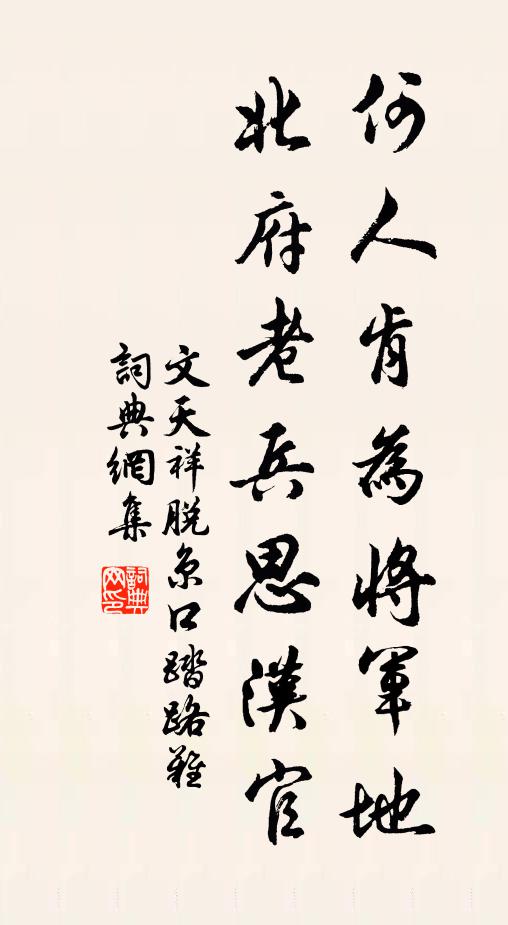 何人肯為將軍地
北府老兵思漢官
文天祥脱京口踏路難
詞典網集
詞典
网印